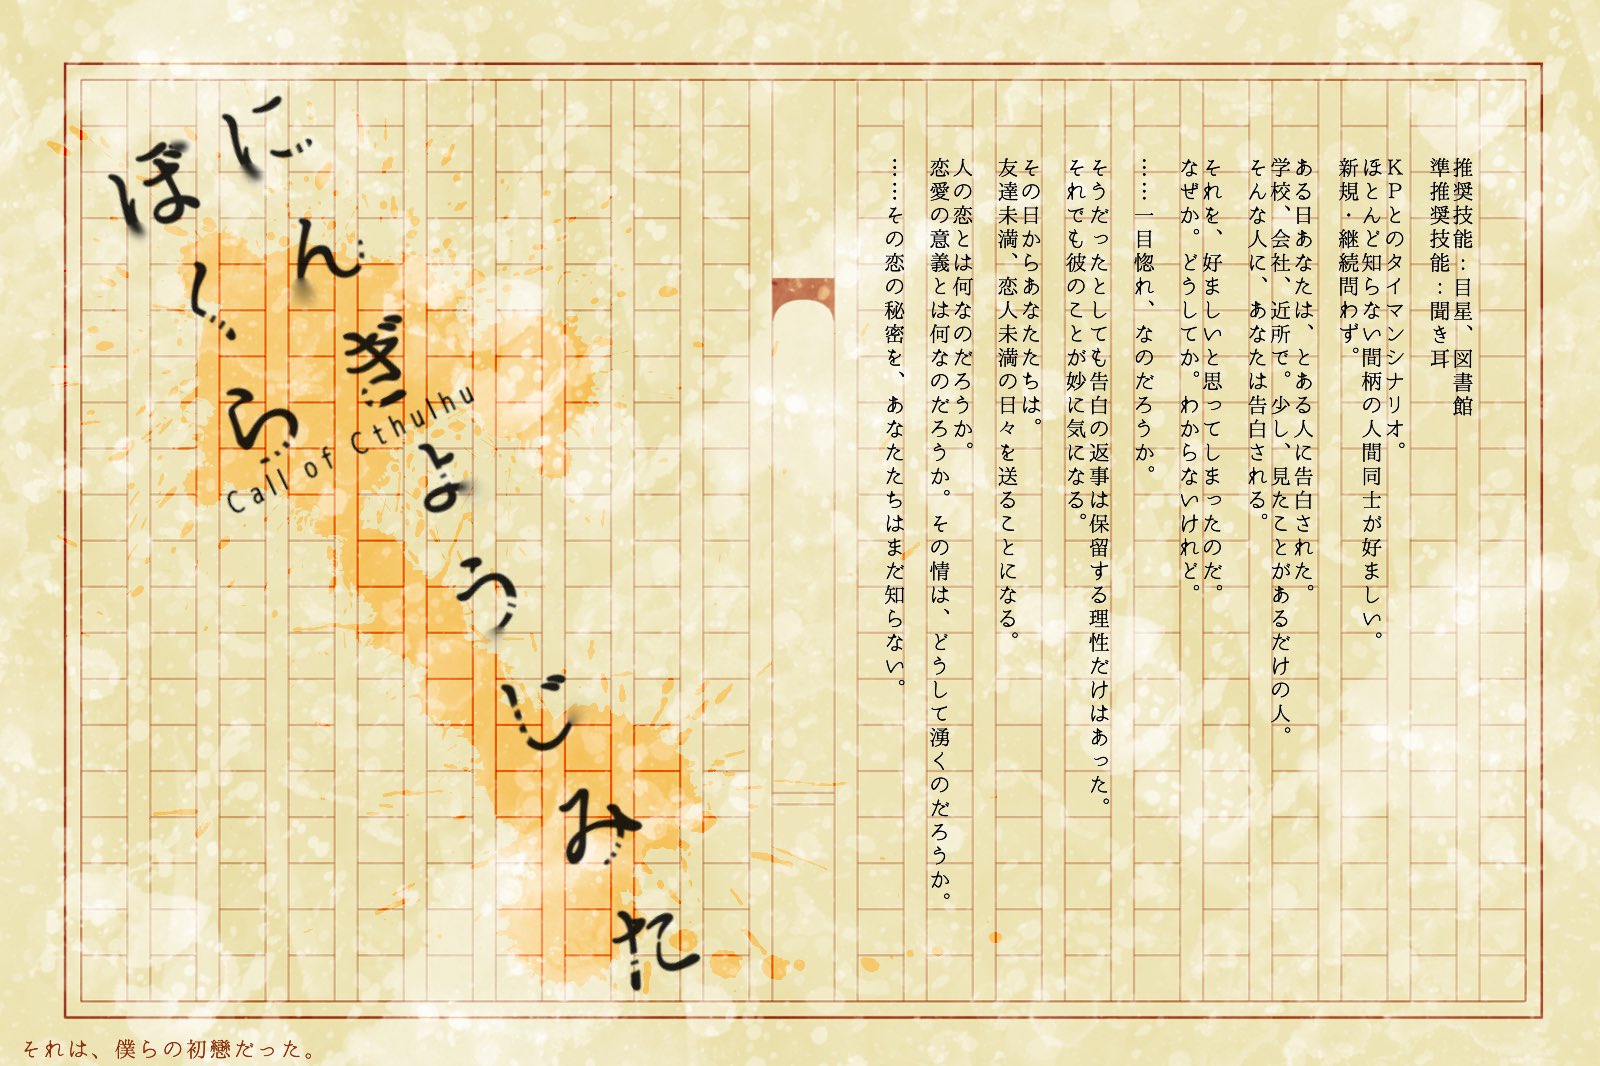 推奨技能：目星、図書館
準推奨技能：聞き耳
ＫＰとのタイマンシナリオ。
ほとんど知らない間柄の人間同士が好ましい。
新規・継続問わず。
ある日あなたは、とある人に告白された。
学校、会社、近所で。少し、見たことがあるだけの人。
そんな人に、あなたは告白される。
それを、好ましいと思ってしまったのだ。
なぜか。どうしてか。わからないけれど。
……一目惚れ、なのだろうか。
そうだったとしても告白の返事は保留する理性だけはあった。
それでも彼のことが妙に気になる。
その日からあなたたちは。
友達未満、恋人未満の日々を送ることになる。
人の恋とは何なのだろうか。
恋愛の意義とは何なのだろうか。その情は、どうして湧くのだろうか。
……その恋の秘密を、あなたたちはまだ知らない。
にんぎょうじみた
ぼくら
Call of Cthulhu
それは、僕らの初戀だった。